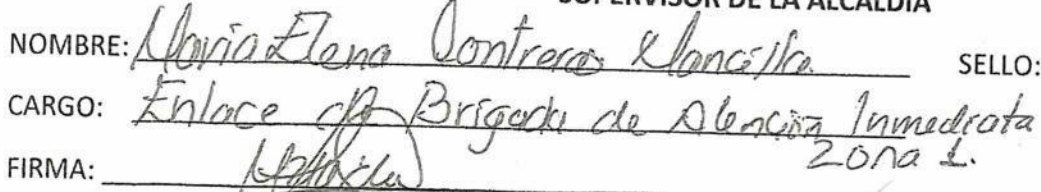 SUPERVISOR DE LA ALCALDIA
NOMBRE: Maria Elena Contreras Mancilla SELLO:
CARGO: Enlace de Brigada de Atención Inmediata
Zona 1.
FIRMA: